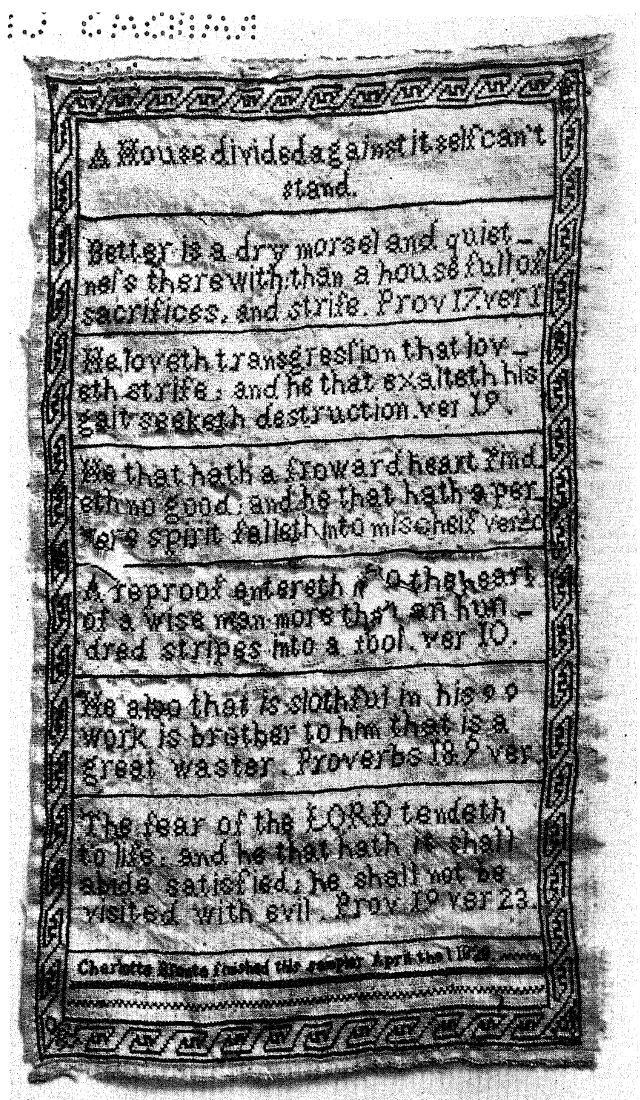 A House divided against itself can't
stand.
Better is a dry morsel and quiet_
neſs therewith: than a house full of
sacrifices, and strife. Prov 17. ver 1
He loveth transgresſion that lov_
eth strife: and he that exalteth his
gait seeketh destruction. ver 19.
He that hath a froward heart find_
eth no good: and he that hath a per_
vers spirit falleth into mischeif ver 20
A reproof entereth into the heart
of a wise man more than an hun_
dred stripes into a fool. ver 10.
He also that is slothful in his
work is brother to him that is a
great waster. Proverbs 18.9 ver
The fear of the LORD tendeth
to life: and he that hath it shall
abide satisfied; he shall not be
visited with evil. Prov 19 ver 23.
Charlotte finished this sampler April the 1